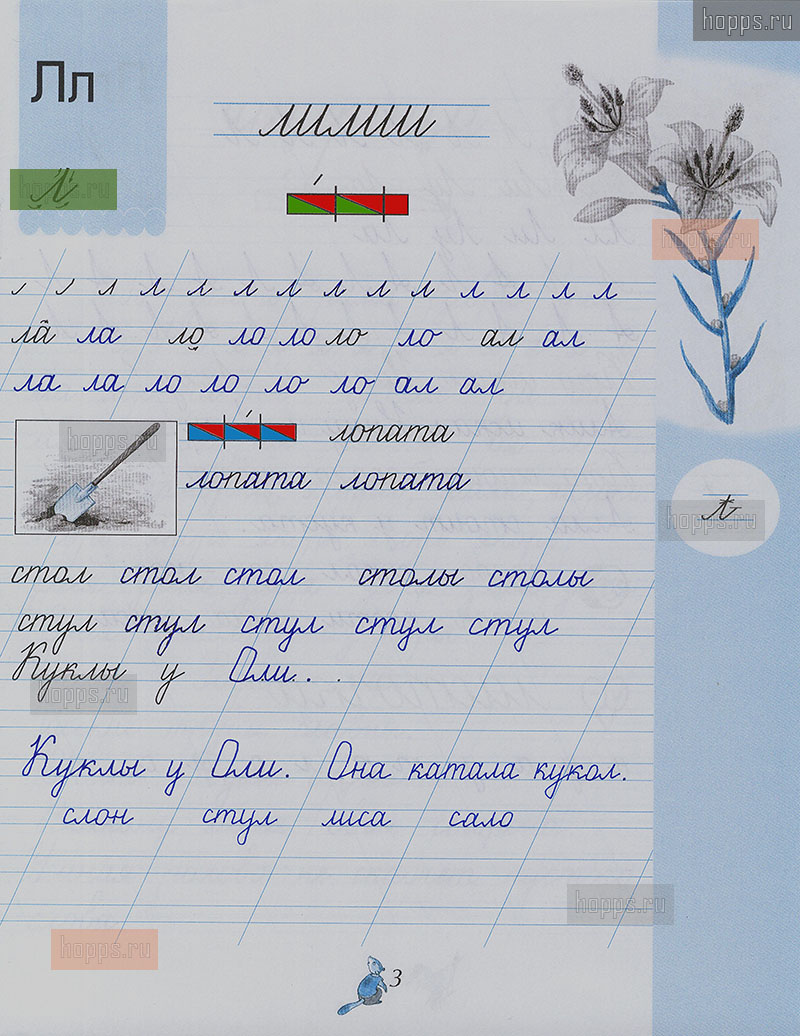 hopps.ru
Лл
лилии
hopps.ru
л
hopps.ru
л л л л л л л л л л л
ла ла ло ло ло ло ло ал ал
ла ла ло ло ло ло ал ал
hopps.ru
лопата
лопата лопата
hopps.ru
л
стол стол стол столы столы
стул стул стул стул стул
Куклы у Оли. .
hopps.ru
Куклы у Оли. Она катала кукол.
слон стул лиса сало
hopps.ru
hopps.ru
3